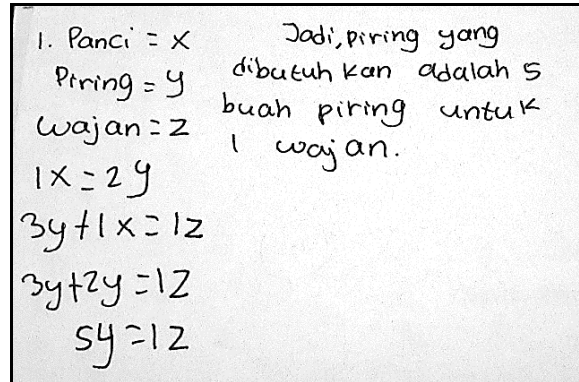 1. Panci = x
Piring = y
wajan = z
1x = 2y
3y + 1x = 1z
3y + 2y = 1z
5y = 1z
Jadi, piring yang
dibutuh kan adalah 5
buah piring untuk
1 wajan.